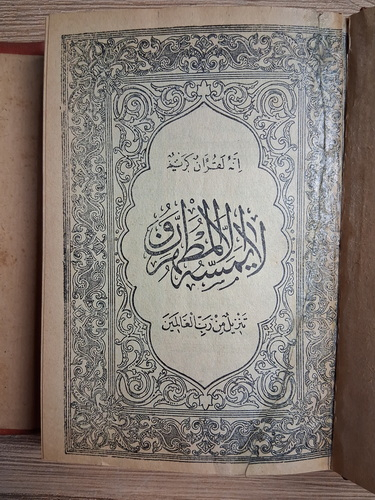 إنه لقرآن كريم
لا يمسه إلا المطهرون
تنزيل من رب العالمين